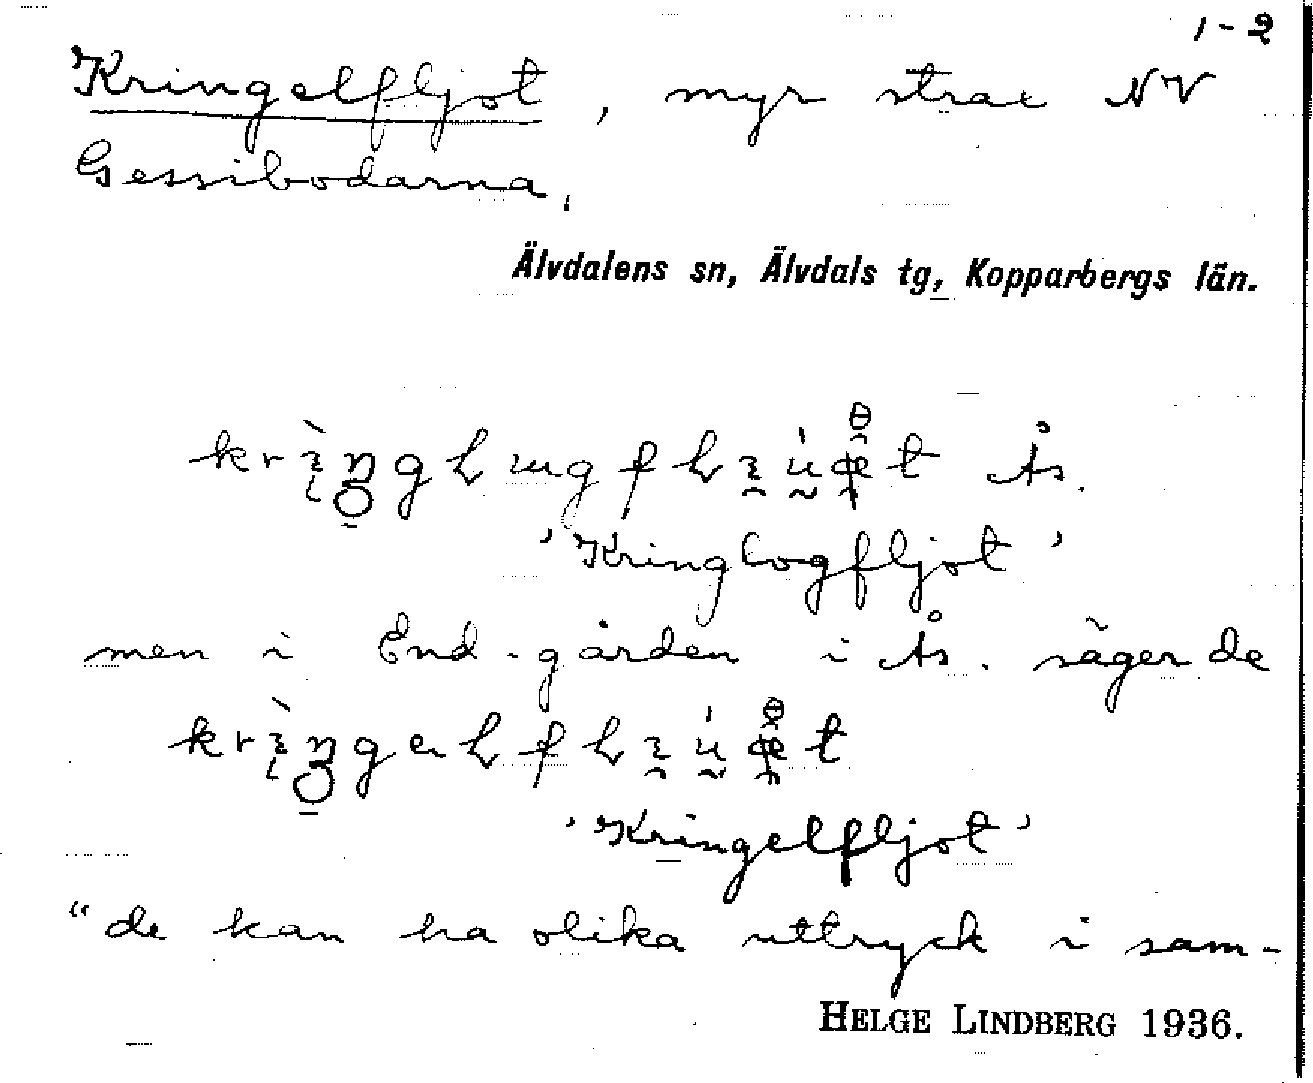 1-2
Kringelfljot, myr strax NV
Gessibodarna.
Älvdalens sn, Älvdals tg, Kopparbergs län.
Ås.
'Kringlogfljot'
men i End-gården i Ås. säger de
'Kringelfljot'
"de kan ha olika uttryck i sam-
HELGE LINDBERG 1936.